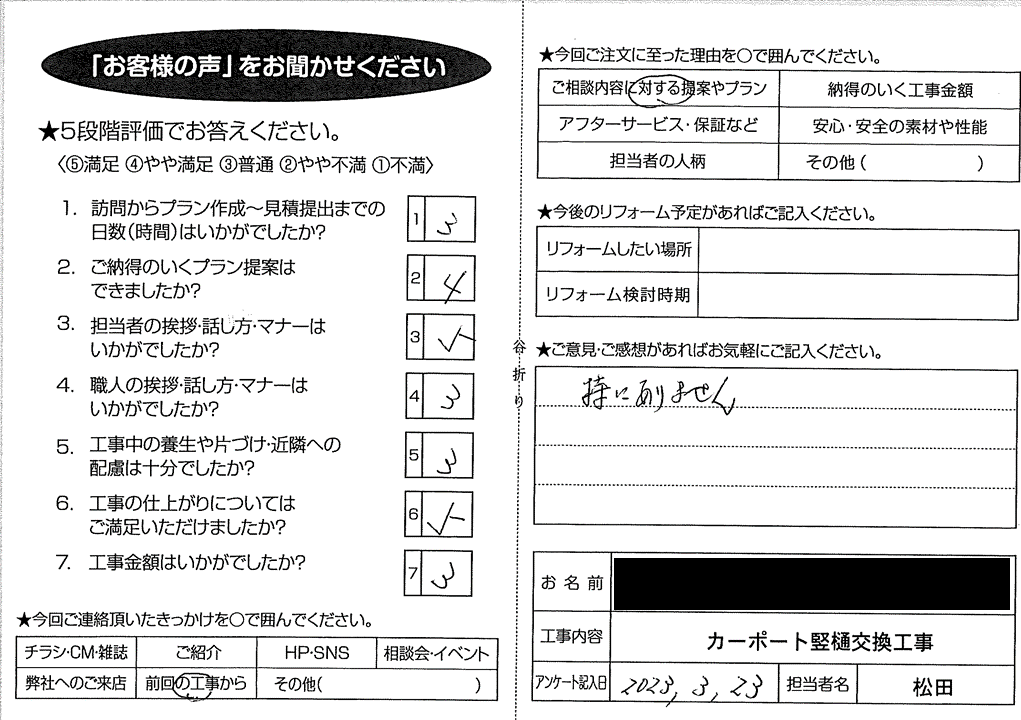 「お客様の声」をお聞かせください
★5段階評価でお答えください。
〈⑤満足 ④やや満足 ③普通 ②やや不満 ①不満〉
1. 訪問からプラン作成～見積提出までの
日数(時間)はいかがでしたか?
1 3
2. ご納得のいくプラン提案は
できましたか?
2 4
3. 担当者の挨拶・話し方・マナーは
いかがでしたか?
3 5
4. 職人の挨拶・話し方・マナーは
いかがでしたか?
4 3
5. 工事中の養生や片づけ・近隣への
配慮は十分でしたか?
5 3
6. 工事の仕上がりについては
ご満足いただけましたか?
6 5
7. 工事金額はいかがでしたか?
7 3
★今回ご連絡頂いたきっかけを○で囲んでください。
チラシ・CM・雑誌 ご紹介 HP・SNS 相談会・イベント
弊社へのご来店 前回の工事から その他( )
谷折り
★今回ご注文に至った理由を○で囲んでください。
ご相談内容に対する提案やプラン 納得のいく工事金額
アフターサービス・保証など 安心・安全の素材や性能
担当者の人柄 その他( )
★今後のリフォーム予定があればご記入ください。
リフォームしたい場所
リフォーム検討時期
★ご意見・ご感想があればお気軽にご記入ください。
特にありません
お名前
工事内容 カーポート竪樋交換工事
アンケート記入日 2023, 3, 23 担当者名 松田